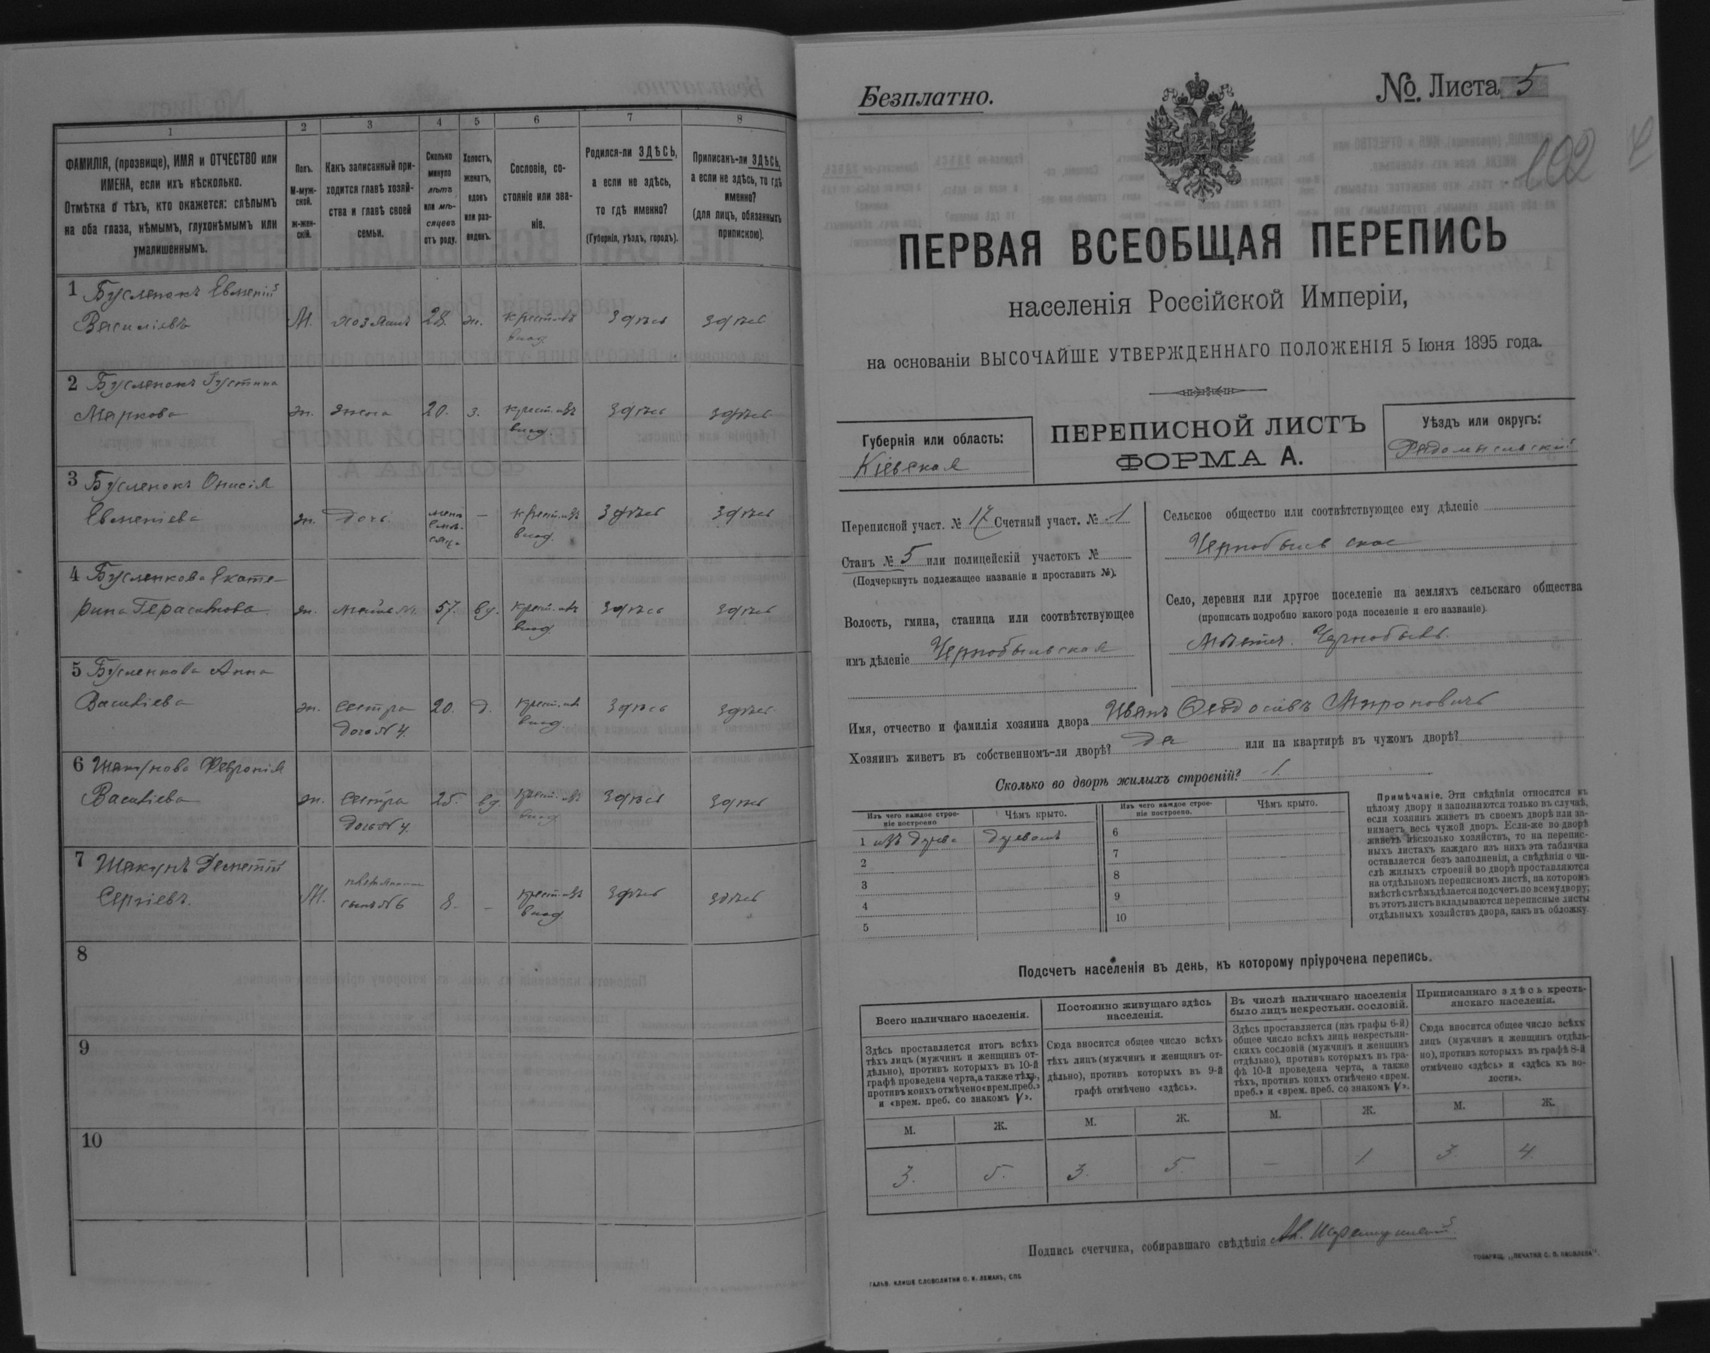 1
2
3
4
5
6
7
8
ФАМИЛІЯ, (прозвище), ИМЯ и ОТЧЕСТВО или
ИМЕНА, если ихъ нѣсколько.
Отмѣтка о тѣхъ, кто окажется: слѣпымъ
на оба глаза, нѣмымъ, глухонѣмымъ или
умалишеннымъ.
Полъ.
М-муж-
ской.
ж-жен-
скій.
Какъ записанный при-
ходится главѣ хозяй-
ства и главѣ своей
семьи.
Сколько
минуло
лѣтъ
или мѣ-
сяцевъ
отъ роду.
Холостъ,
женатъ,
вдовъ
или раз-
веденъ.
Сословіе, со-
стояніе или зва-
ніе.
Родился-ли ЗДѢСЬ,
а если не здѣсь,
то гдѣ именно?
(Губернія, уѣздъ, городъ).
Приписанъ-ли ЗДѢСЬ,
а если не здѣсь, то гдѣ
именно?
(для лицъ, обязанныхъ
припискою).
1 Бусленокъ Евменій
Василіевъ
М. хозяинъ 28. ж. крест. изъ влад. здѣсь здѣсь
2 Бусленокъ Устина
Маркова
ж. жена 20. з. крест. изъ влад. здѣсь здѣсь
3 Бусленокъ Онисія
Евменіева
ж. дочь — крест. изъ влад. здѣсь здѣсь
4 Бусленкова Екате-
рина Герасимова
ж. 57. вд. крест. изъ влад. здѣсь здѣсь
5 Бусленкова Анна
Василіева
ж. сестра 20. д. крест. изъ влад. здѣсь здѣсь
6 Шакунова Февронія
Василіева
ж. сестра 25. вд. крест. изъ влад. здѣсь здѣсь
7 Шакунъ Дементій
Сергіевъ
М. сынъ № 6 8. — крест. изъ влад. здѣсь здѣсь
8
9
10
Безплатно.
№ Листа 5
102
ПЕРВАЯ ВСЕОБЩАЯ ПЕРЕПИСЬ
населенія Россійской Имперіи,
на основаніи ВЫСОЧАЙШЕ УТВЕРЖДЕННАГО ПОЛОЖЕНІЯ 5 Іюня 1895 года.
Губернія или область:
Кіевская
ПЕРЕПИСНОЙ ЛИСТЪ
ФОРМА А.
Уѣздъ или округъ:
Радомысльскій
Переписной участ. № 17 Счетный участ. № 1
Станъ № 5 или полицейскій участокъ №
(Подчеркнуть подлежащее названіе и проставить №).
Волость, гмина, станица или соотвѣтствующее
имъ дѣленіе Чернобыльская
Сельское общество или соотвѣтствующее ему дѣленіе
Чернобыльское
Село, деревня или другое поселеніе на земляхъ сельского общества
(прописать подробно какого рода поселеніе и его названіе)
Мѣстеч. Чернобыль.
Имя, отчество и фамилія хозяина двора Иванъ Ѳеодосіевъ Мироновичъ
Хозяинъ живетъ въ собственномъ-ли дворѣ? да или на квартирѣ въ чужомъ дворѣ?
Сколько во дворѣ жилыхъ строеній? 1.
Изъ чего каждое строе-
ніе построено
Чѣмъ крыто.
Изъ чего каждое строе-
ніе построено.
Чѣмъ крыто.
1 изъ дерева деревомъ
2
3
4
5
6
7
8
9
10
Примѣчаніе. Эти свѣдѣнія относятся къ
цѣлому двору и заполняются только въ случаѣ,
если хозяинъ живетъ въ своемъ дворѣ или за-
нимаетъ весь чужой дворъ. Если-же во дворѣ
живетъ нѣсколько хозяйствъ, то на перепис-
ныхъ листахъ каждаго изъ нихъ эта табличка
оставляется безъ заполненія, а свѣдѣнія о чи-
слѣ жилыхъ строеній во дворѣ проставляются
на отдѣльномъ переписномъ листѣ, на которомъ
вмѣстѣ съ тѣмъ дѣлается подсчетъ по всему двору;
въ этотъ листъ вкладываются переписные листы
отдѣльныхъ хозяйствъ двора, какъ въ обложку.
Подсчетъ населенія въ день, къ которому пріурочена перепись.
Всего наличнаго населенія.
Постоянно живущаго здѣсь
населенія.
Въ числѣ наличнаго населенія
было лицъ некрестьян. сословій.
Приписаннаго здѣсь кресть-
янскаго населенія.
Здѣсь проставляется итогъ всѣхъ
тѣхъ лицъ (мужчинъ и женщинъ от-
дѣльно), противъ которыхъ въ 10-й
графѣ проведена черта, а также тѣхъ,
противъ коихъ отмѣчено «врем. преб.»
и «врем. преб. со знакомъ V».
Сюда вносится общее число всѣхъ
тѣхъ лицъ (мужчинъ и женщинъ от-
дѣльно), противъ которыхъ въ 9-й
графѣ отмѣчено «здѣсь».
Здѣсь проставляется (изъ графы 6-й)
общее число всѣхъ лицъ некрестьян-
скихъ сословій (мужчинъ и женщинъ
отдѣльно), противъ которыхъ въ гра-
фѣ 10-й проведена черта, а также
тѣхъ, противъ коихъ отмѣчено «врем.
преб.» и «врем. преб. со знакомъ V».
Сюда вносится общее число всѣхъ
лицъ (мужчинъ и женщинъ отдѣль-
но), противъ которыхъ въ графѣ 8-й
отмѣчено «здѣсь» и «здѣсь къ во-
лости».
М. Ж. М. Ж. М. Ж. М. Ж.
3. 5. 3. 5. — 1 3 4.
Подпись счетчика, собиравшаго свѣдѣнія
ГАЛЬВ. КЛИШЕ СЛОВОЛИТНИ О. И. ЛЕМАНЪ, СПБ.
ТОВАРИЩ. „ПЕЧАТНИ С. П. ЯКОВЛЕВА“.